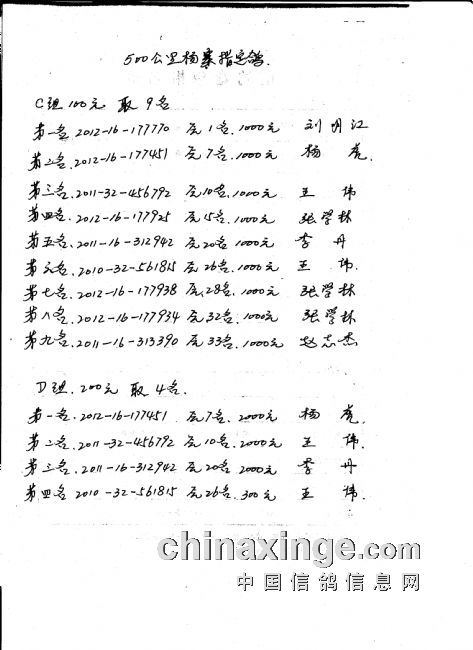 500公里杨寨指定鸽
C组100元 取9名
第一名 2012-16-177770 原1名.1000元 刘明江
第二名.2012-16-177451 原7名.1000元 杨虎.
第三名.2011-32-456792 原10名.1000元 王伟
第四名.2012-16-177925 原15名.1000元 张学林
第五名.2011-16-312942 原20名 1000元 李丹
第六名.2010-32-561815 原26名.1000元 王伟.
第七名.2012-16-177938 原.28名.1000元 张学林
第八名.2012-16-177934 原32名.1000元 张学林
第九名.2011-16-313390 原33名.1000元 赵志杰
D组.200元 取4名.
第一名.2012-16-177451 原7名.2000元 杨虎.
第二名.2011-32-456792 原10名.2000元 王伟.
第三名.2011-16-312942 原20名 2000元 李丹
第四名 2010-32-561815 原26名.300元 王伟.
chinaxinge.com
中国信鸽信息网